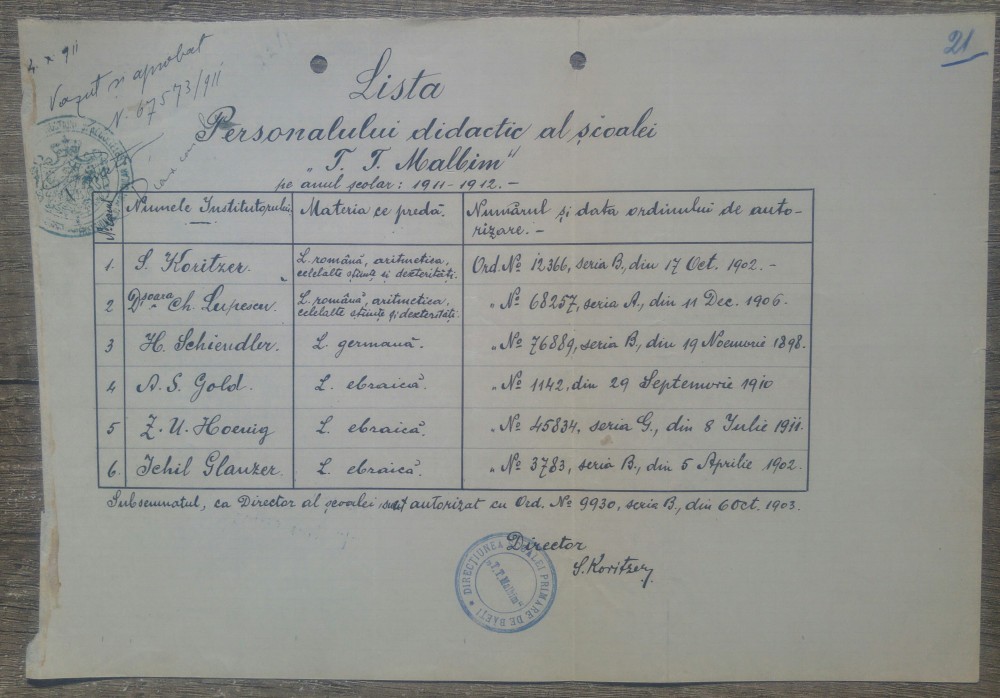 21
4 X 911
Vazut și aprobat
N. 67573/911
Lista
Personalului didactic al școalei
„T. T. Malbim”
pe anul școlar: 1911-1912. -
Numele Institutorului. Materia ce predă. Numărul și data ordinului de auto-
rizare. -
1. S. Koritzer. L. română, aritmetica, Ord. № 12366, seria B, din 17 Oct. 1902. -
celelalte științe și dexterități.
2 Dșoara Ch. Lupescu. L. română, aritmetica, „ № 68257, seria A, din 11 Dec. 1906.
celelalte științe și dexterități.
3 H. Schiendler. L. germană. „ № 76889, seria B, din 19 Noemvrie 1898.
4 A. S. Gold. L. ebraică. „ № 1142, din 29 Septemvrie 1910
5 Z. U. Hoenig L. ebraică. „ № 45834, seria G., din 8 Iulie 1911.
6. Ichil Glanzer. L. ebraică. „ № 3783, seria B., din 5 Aprilie 1902.
Subsemnatul, ca Director al școalei sunt autorizat cu Ord. № 9930, seria B., din 6 Oct. 1903.
Director
S. Koritzer
DIRECȚIUNEA ȘCOALEI PRIMARE DE BĂEȚI
„T. T. Malbim”